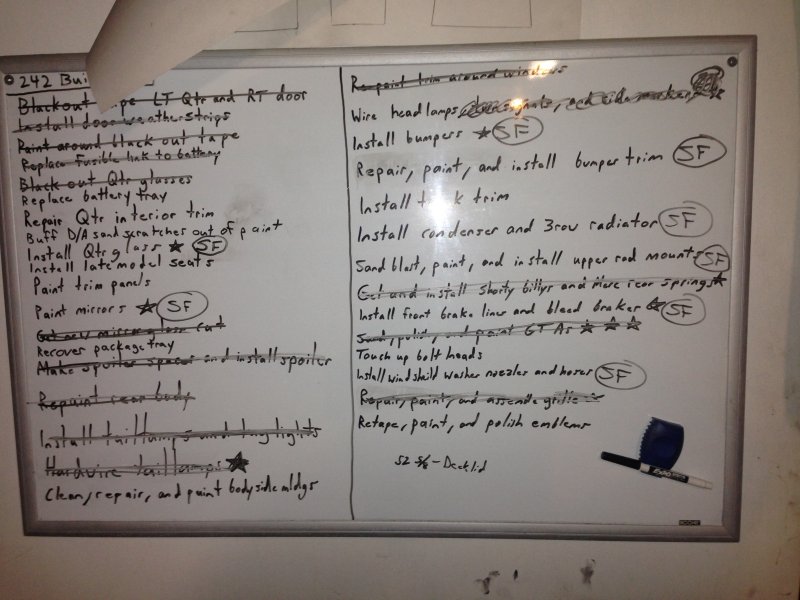 242 Bui
Blackout pe LT Qtr and RT door
Install door weatherstrips
Paint around black out tape
Replace fusible link to battery
Black out Qtr glasses
Replace battery tray
Repair Qtr interior trim
Buff D/A sand scratches out of paint
Install Qtr glass ★ SF
Install late model seats
Paint trim panels
Paint mirrors ★ SF
Get new mirror glass cut
Recover package tray
Make spoiler spacer and install spoiler
Repaint rear body
Install taillamps and taglights
Hardwire taillamps ★
Clean, repair, and paint bodyside mldgs
Repaint trim around windows
Wire headlamps, and side markers ★
Install bumpers ★ SF
Repair, paint, and install bumper trim SF
Install trim
Install condenser and 3row radiator SF
Sand blast, paint, and install upper rad mounts SF
Get and install shorty billys and rear springs ★
Install front brake lines and bleed brakes ★ SF
Sand, polish, and paint GT As ★ ★ ★
Touch up bolt heads
Install windshield washer nozzles and hoses SF
Repair, paint, and assemble grille
Retape, paint, and polish emblems
52 5/8 - Decklid
EXPO